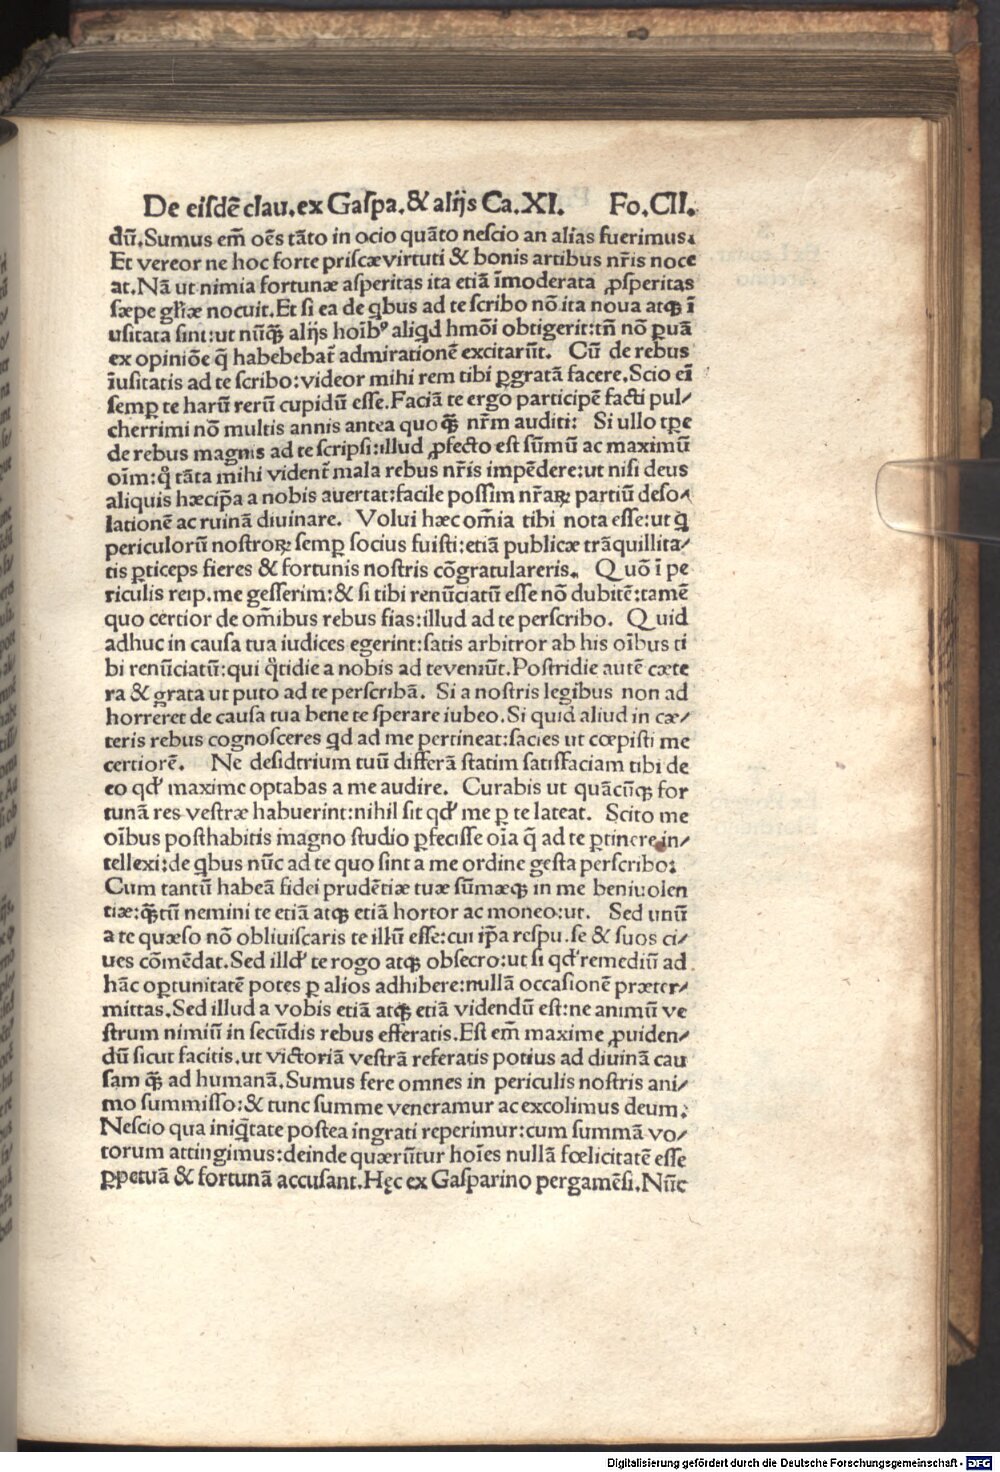 De eisdē clau. ex Gaspa. & alijs Ca. XI. Fo. CII.
dū. Sumus em̄ oēs tāto in ocio quāto nescio an alias fuerimus.
Et vereor ne hoc forte priscæ virtuti & bonis artibus nr̄is noce
at. Nā ut nimia fortunæ asperitas ita etiā īmoderata ꝓsperitas
sæpe gl̄iæ nocuit. Et si ea de qbus ad te scribo nō ita noua atqꝫ ī
usitata sint: ut nūqꝫ alijs hoībꝰ aliqd hmōi obtigerit: tn̄ nō ꝑuā
ex opiniōe q̄ habebebat̄ admirationē excitarūt. Cū de rebus
īusitatis ad te scribo: videor mihi rem tibi ꝑgratā facere. Scio eī
semꝑ te harū rerū cupidū esse. Faciā te ergo participē facti pul/
cherrimi nō multis annis antea quoqꝫ nr̄m auditi: Si ullo tꝑe
de rebus magnis ad te scripsi: illud ꝓfecto est sūmū ac maximū
oīm: ꝙ tāta mihi vident̄ mala rebus nr̄is impēdere: ut nisi deus
aliquis hæcip̄a a nobis auertat: facile possim nr̄aꝝ partiū deso/
lationē ac ruinā diuinare. Volui hæc om̄ia tibi nota esse: ut q
periculorū nostroꝝ semꝑ socius fuisti: etiā publicæ trāquillita/
tis ꝑticeps fieres & fortunis nostris cōgratulareris. Quō ī pe
riculis reip. me gesserim: & si tibi renūciatū esse nō dubitē: tamē
quo certior de om̄ibus rebus fias: illud ad te perscribo. Quid
adhuc in causa tua iudices egerint: satis arbitror ab his oībus ti
bi renūciatū: qui q̄tidie a nobis ad te veniūt. Postridie autē cæte
ra & grata ut puto ad te perscribā. Si a nostris legibus non ad
horreret de causa tua bene te sperare iubeo. Si quid aliud in cæ/
teris rebus cognosceres qd ad me pertineat: facies ut cœpisti me
certiorē. Ne desidtrium tuū differā statim satisfaciam tibi de
eo qd' maxime optabas a me audire. Curabis ut quācūqꝫ for
tunā res vestræ habuerint: nihil sit qd' me ꝑ te lateat. Scito me
oībus posthabitis magno studio ꝑfecisse oīa q̄ ad te ꝑtinere in/
tellexi: de qbus nūc ad te quo sint a me ordine gesta perscribo:
Cum tantū habeā fidei prudētiæ tuæ sūmæqꝫ in me beniuolen
tiæ: qꝫtū nemini te etiā atqꝫ etiā hortor ac moneo: ut. Sed unū
a te quæso nō obliuiscaris te illū esse: cui ip̄a respu. se & suos ci/
ues cōmēdat. Sed illd' te rogo atqꝫ obsecro: ut si qd' remediū ad
hāc oꝑtunitatē potes ꝑ alios adhibere: nullā occasionē præter/
mittas. Sed illud a vobis etiā atqꝫ etiā videndū est: ne animū ve
strum nimiū in secūdis rebus efferatis. Est em̄ maxime ꝓuiden/
dū sicut facitis. ut victoriā vestrā referatis potius ad diuinā cau
sam qꝫ ad humanā. Sumus fere omnes in periculis nostris ani/
mo summisso: & tunc summe veneramur ac excolimus deum.
Nescio qua iniqtate postea ingrati reperimur: cum summā vo/
torum attingimus: deinde quærūtur hoīes nullā fœlicitatē esse
ꝑpetuā & fortunā accusant. Hęc ex Gasparino pergamēsi. Nūc
Digitalisierung gefördert durch die Deutsche Forschungsgemeinschaft - DFG